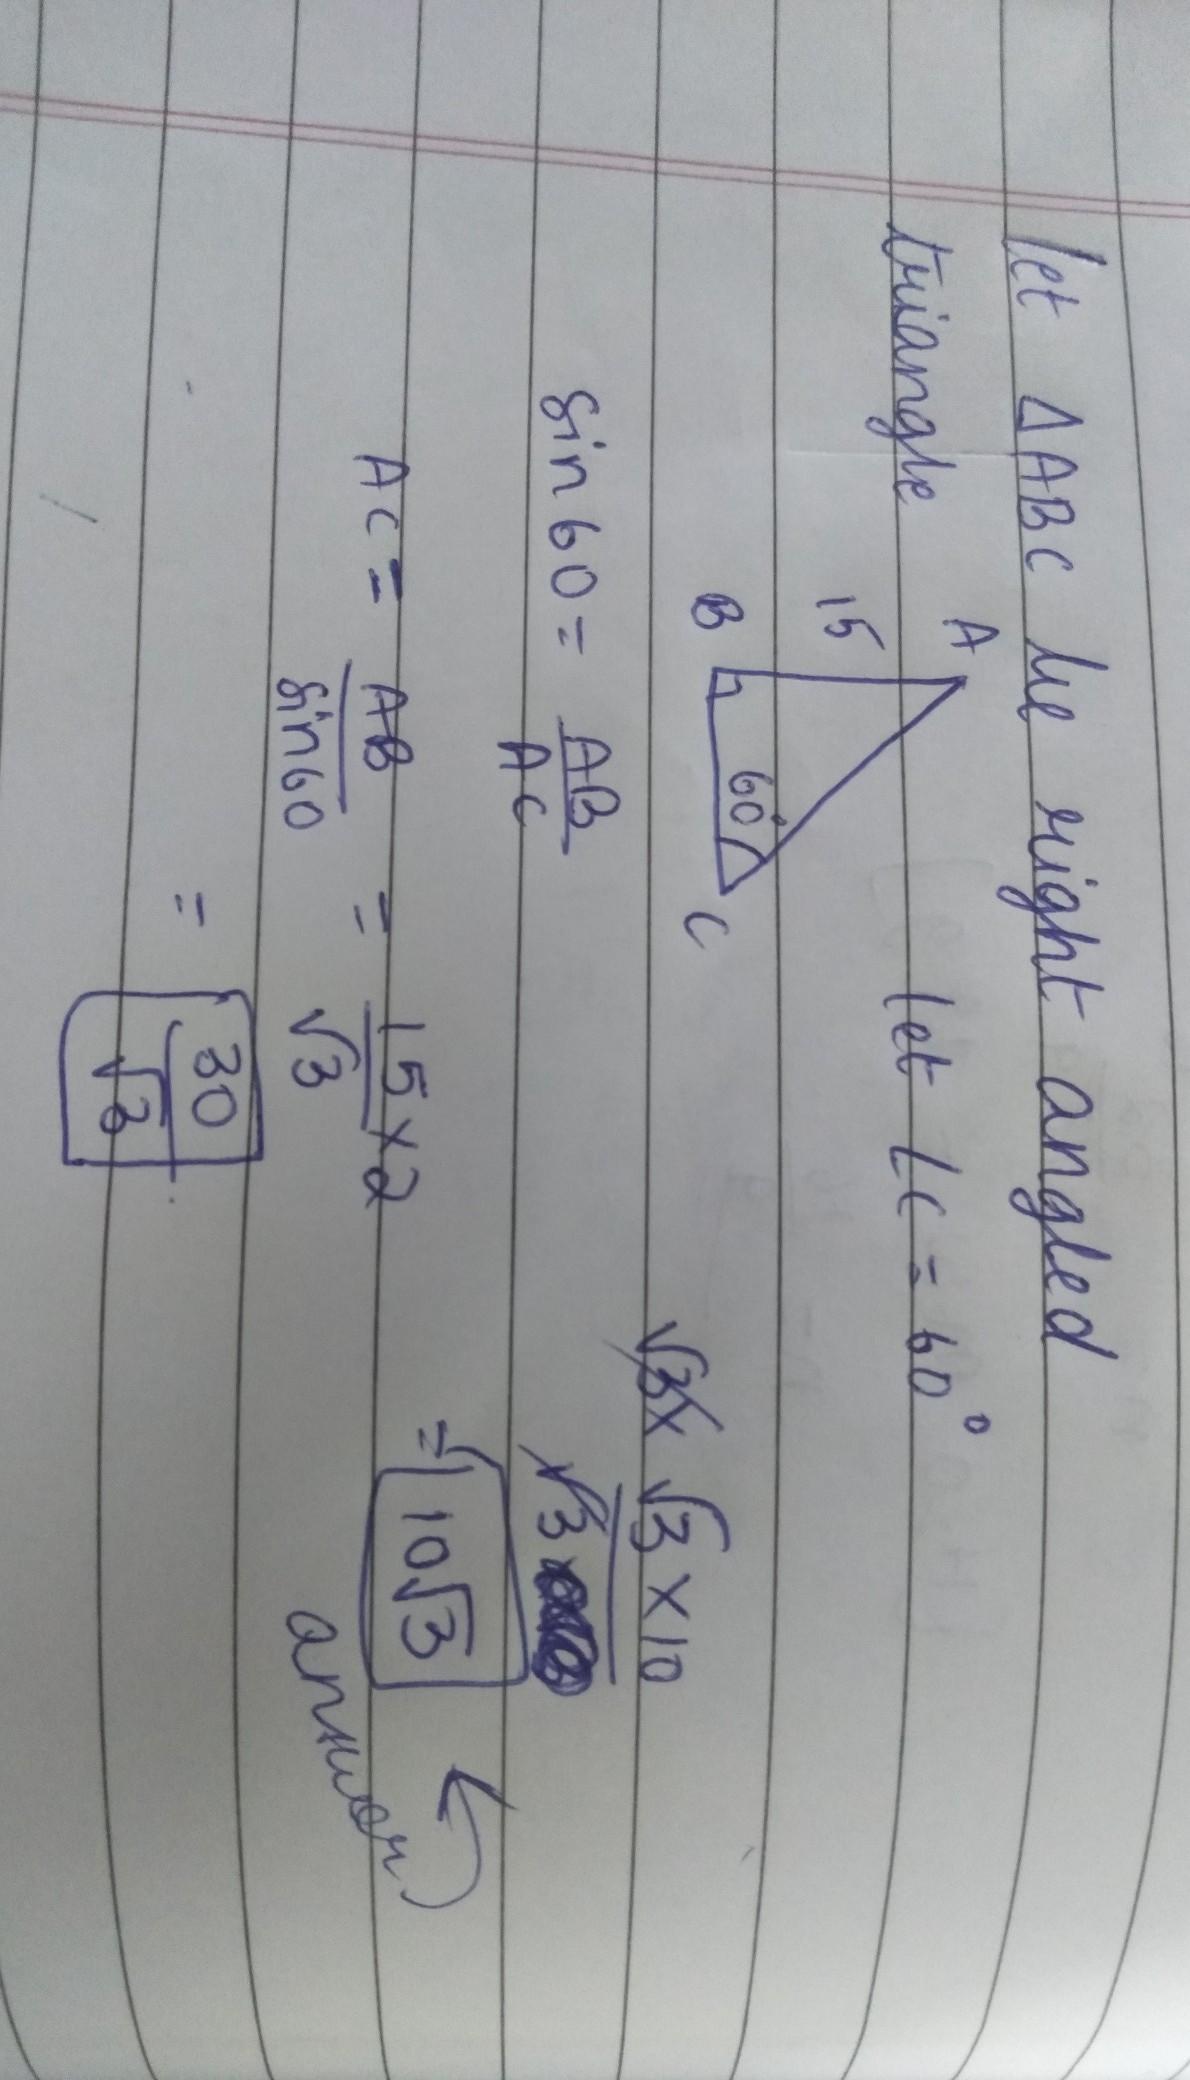 let ΔABC be right angled
triangle
let ∠C = 60°
A
15
60°
B
C
sin60 = AB/AC
AC = AB/sin60 = 15×2/√3
= 30/√3
√3× √3×10/√3
= 10√3
answer